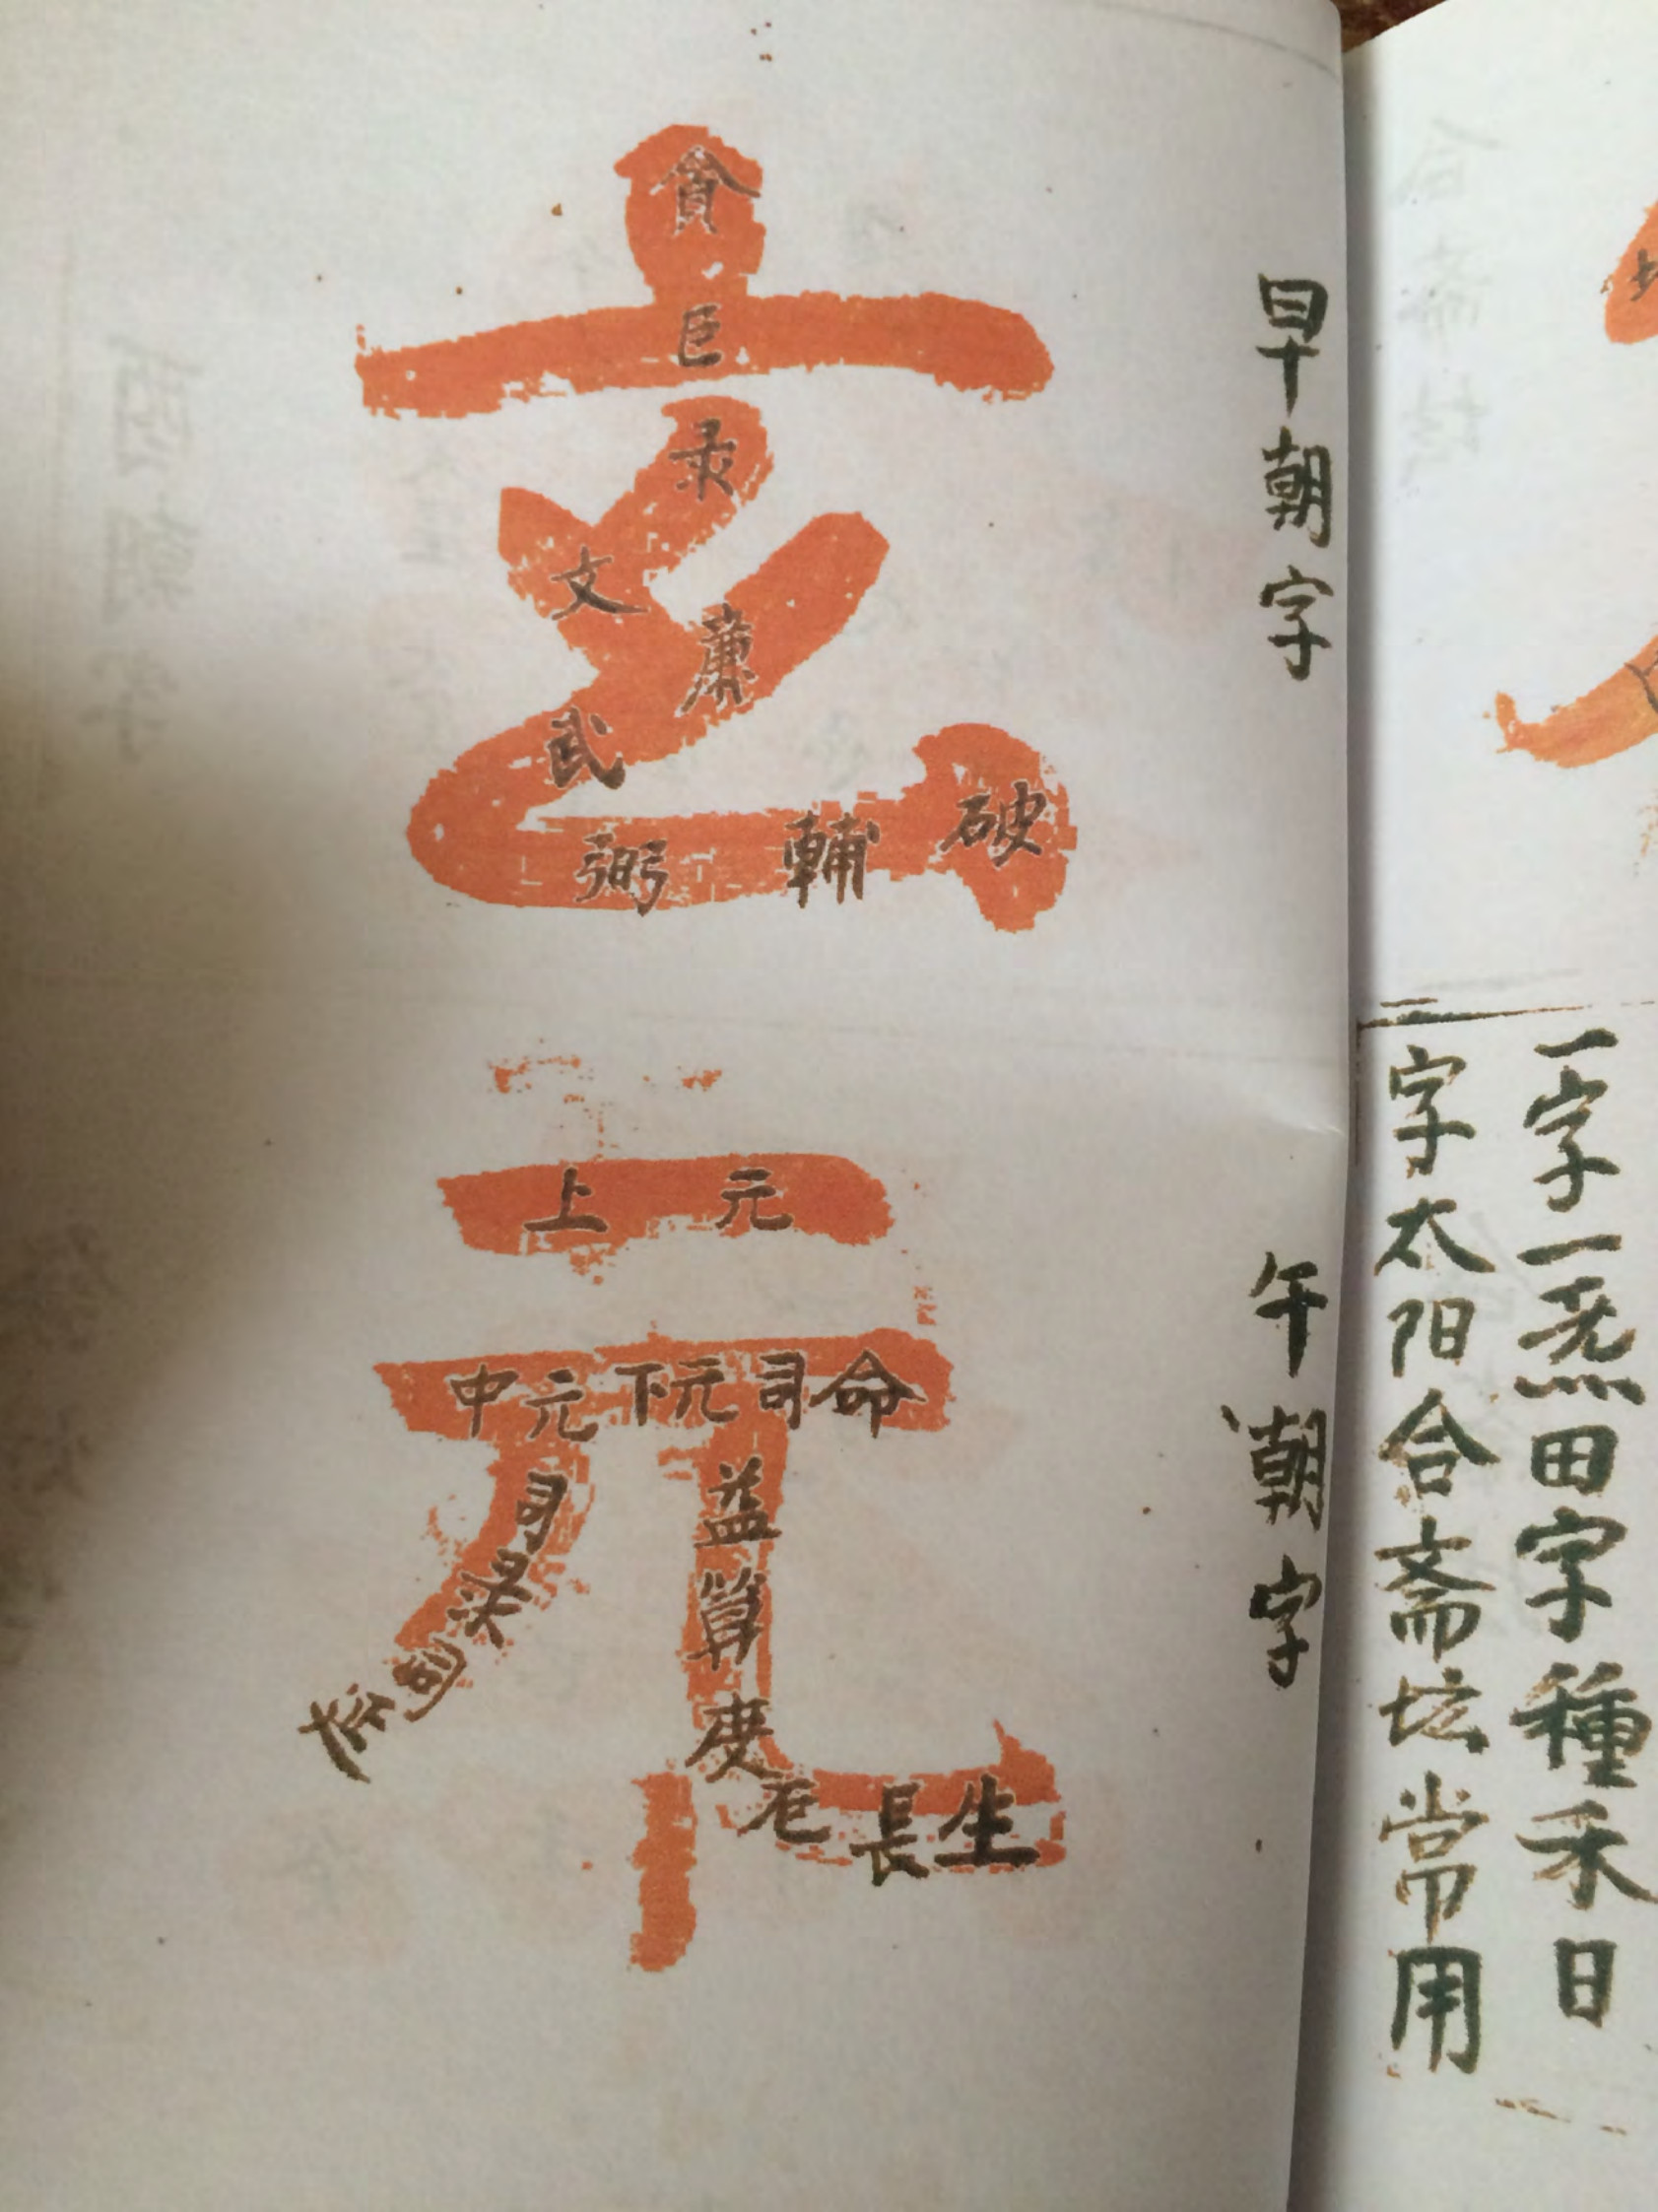 一字一炁田字種禾日
字太阳合斋坛常用
早朝字
玄
貪
巨
录
文
廉
武
破
輔
弼
午朝字
元
上元
中元下元司命
司录
益算
度厄
長生